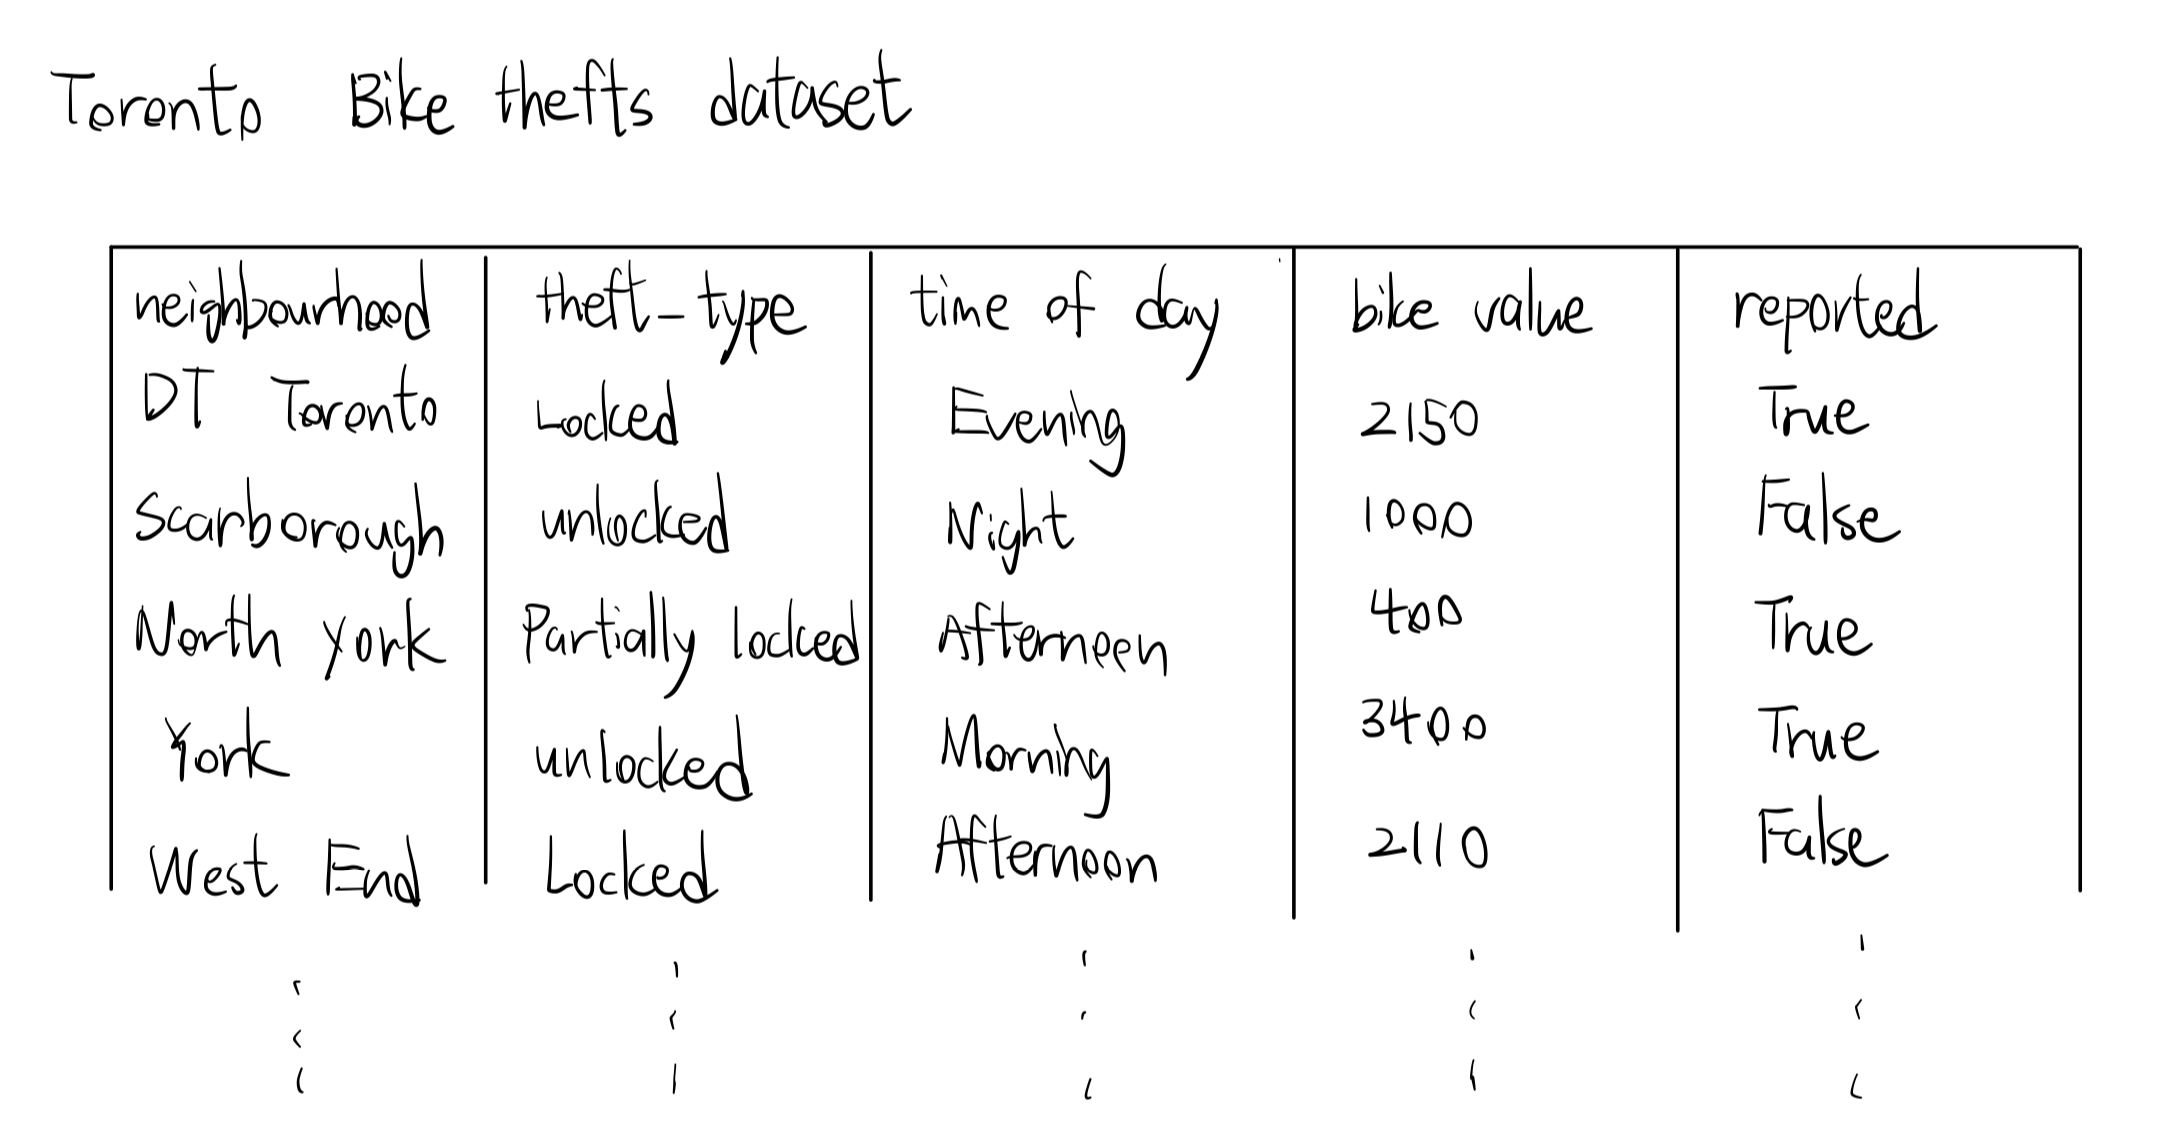 Toronto Bike thefts dataset
neighbourhood theft-type time of day bike value reported
DT Toronto Locked Evening 2150 True
Scarborough unlocked Night 1000 False
North York Partially locked Afternoon 400 True
York unlocked Morning 3400 True
West End Locked Afternoon 2110 False